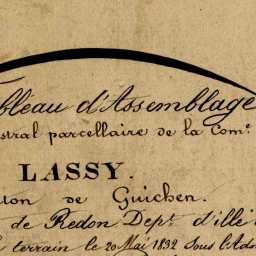 bleau d'Assemblage
stral parcellaire de la Com.e
LASSY.
ton de Guichen.
de Redon Dep.t d'ille
terrain le 20 Mai 1832 Sous l'Adm